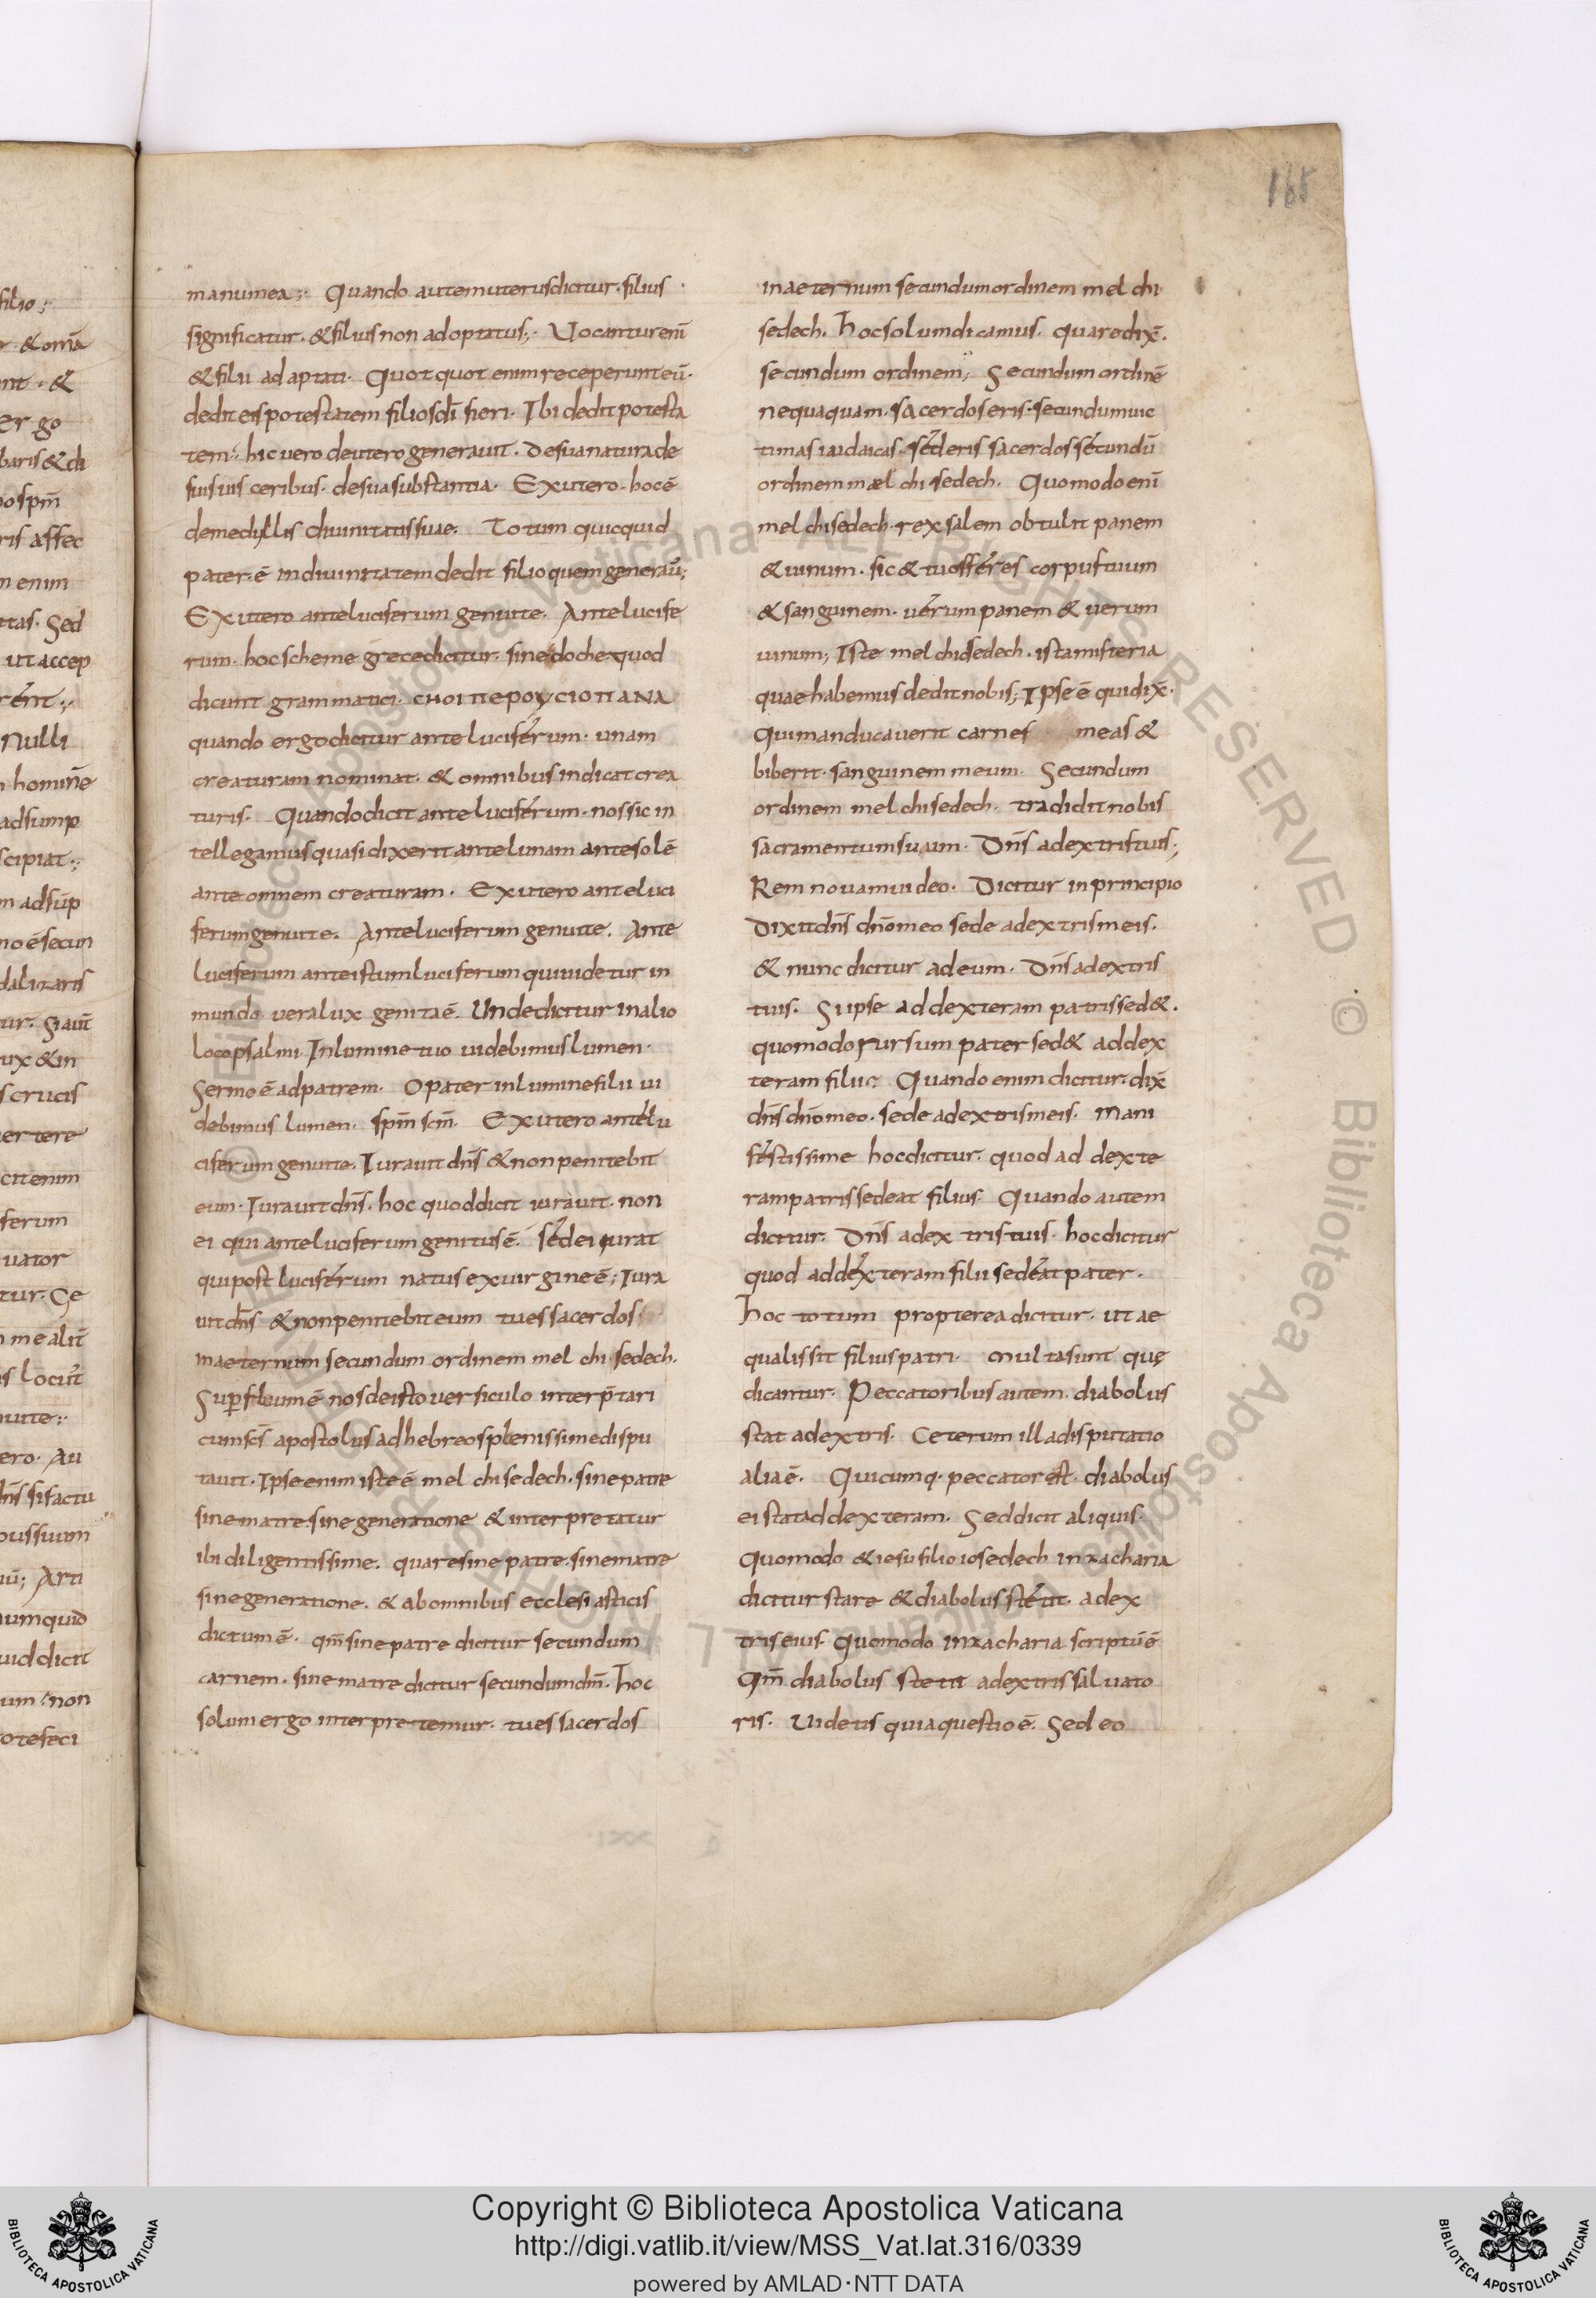 168
manumea;· Quando autem uterus dicitur· filius
significatur· & filius non adoptatus;· Uocantur enī
& filii adaptati· Quotquot enim receperunt eū·
dedit eis potestatem filios dī fieri· Ibi dedit potesta
tem· hic uero de utero generauit· De sua natura de
suis uisceribus· de sua substantia· Ex utero· hoc ē
de medyllis diuinitatis suae· Totum quicquid
pater· ē in diuinitatem dedit filio quem generau̅;
Ex utero ante luciferum genui te· Ante lucife
rum· hoc scheme grece dicitur· sinedoche quod
dicunt grammatici· CHOITTEPOYCIOTTANA
quando ergo dicitur ante luciferum· unam
creaturam nominat· & omnibus indicat crea
turis· Quando dicit ante luciferum· nos sic in
tellegamus quasi dixerit ante lunam ante solē
ante omnem creaturam· Ex utero ante luci
ferum genui te· Ante luciferum genui te· Ante
luciferum ante istum luciferum qui uidetur in
mundo uera lux genita ē· Unde dicitur in alio
loco psalmi· In lumine tuo uidebimus lumen·
Sermo ē ad patrem· O pater in lumine filii ui
debimus lumen· spm̄ scm̄· Ex utero ante lu
ciferum genui te· Iurauit dn̄s & non penitebit
eum· Iurauit dn̄s· hoc quod dicit iurauit· non
ei qui ante luciferum genitus ē· sed ei iurat
qui post luciferum natus ex uirgine ē; Iura
uit dn̄s & non penitebit eum tu es sacerdos
in aeternum secundum ordinem melchisedech·
Sup̄fluum ē nos de isto uersiculo interp̄tari
cum sc̄s apostolus ad hebreos plenissime dispu
tauit· Ipse enim iste ē melchisedech· sine patre
sine matre· sine generatione & interpretatur
ibi diligentissime· quare sine patre· sine matre
sine generatione· & ab omnibus ecclesiasticis
dictum ē· qm̄ sine patre dicitur secundum
carnem· sine matre dicitur secundum dm̄· hoc
solum ergo interpretemur· tu es sacerdos
in aeternum secundum ordinem melchi
sedech· hoc solum dicamus· quare dix̄·
secundum ordinem; Secundum ordinē
nequaquam· sacerdos eris· secundum uic
timas iudaicas· sed eris sacerdos secundū
ordinem mælchisedech· Quomodo enī
melchisedech· rex salem obtulit panem
& uinum· sic & tu offeres corpus tuum
& sanguinem· uerum panem & uerum
uinum; Iste melchisedech· ista misteria
quae habemus dedit nobis; Ipse ē qui dix̄·
Qui manducauerit carnes meas &
biberit· sanguinem meum· Secundum
ordinem melchisedech· tradidit nobis
sacramentum suum· Dn̄s a dextris tuis;
Rem nouam uideo· Dicitur in principio
Dixit dn̄s dn̄o meo sede a dextris meis·
& nunc dicitur ad eum· Dn̄s a dextris
tuis· Si ipse ad dexteram patris sed&·
quomodo rursum pater sed& ad dex
teram filii? Quando enim dicitur· dix̄
dn̄s dn̄o meo· sede a dextris meis· Mani
festissime hoc dicitur· quod ad dexte
ram patris sedeat filius· Quando autem
dicitur· Dn̄s a dextris tuis· hoc dicitur
quod ad dexteram filii sedeat pater·
hoc totum propterea dicitur· ut ae
qualis sit filius patri· Multa sunt quę
dicantur· Peccatoribus autem· diabolus
stat a dextris· Ceterum illa disputatio
alia ē· Quicumq· peccator est· diabolus
ei stat ad dexteram· Sed dicit aliquis·
Quomodo & iesu filio iosedech in zacharia
dicitur stare & diabolus stetit· a dex
tris eius· Quomodo in zacharia scriptū ē
Qm̄ diabolus stetit a dextris saluato
ris· Uidetis quia questio ē· Sed eo
Copyright © Biblioteca Apostolica Vaticana
http://digi.vatlib.it/view/MSS_Vat.lat.316/0339
powered by AMLAD·NTT DATA